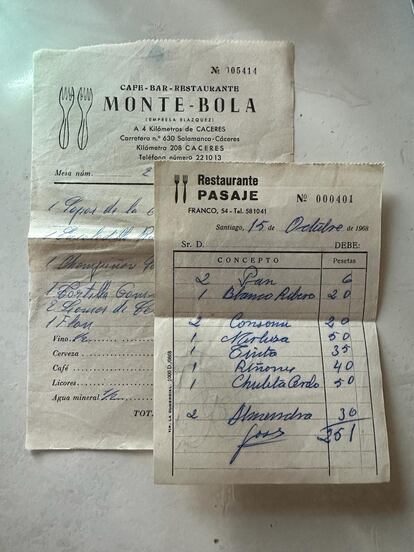 Nº 005414
CAFE-BAR-RESTAURANTE
MONTE-BOLA
(EMPRESA BLAZQUEZ)
A 4 Kilómetros de CACERES
Carretera n.º 630 Salamanca-Cáceres
Kilómetro 208 CACERES
Teléfono número 221013
Mesa núm. 2
1 Sopas de la
1
1 Champiñon
1 Tortilla
2 Lomos de
1 Flan
Vino ½
Cerveza
Café
Licores
Agua mineral ½
TOT
Restaurante
PASAJE
Nº 000401
FRANCO, 54 - Tel. 581041
Santiago, 15 de Octubre de 1968
Sr. D. DEBE:
CONCEPTO Pesetas
2 Pan 6
1 Blanco Ribeiro 20
2 Consomé 20
1 Merluza 50
1 35
1 Riñones 40
1 Chuleta Cerdo 50
2 Almendra 30
251